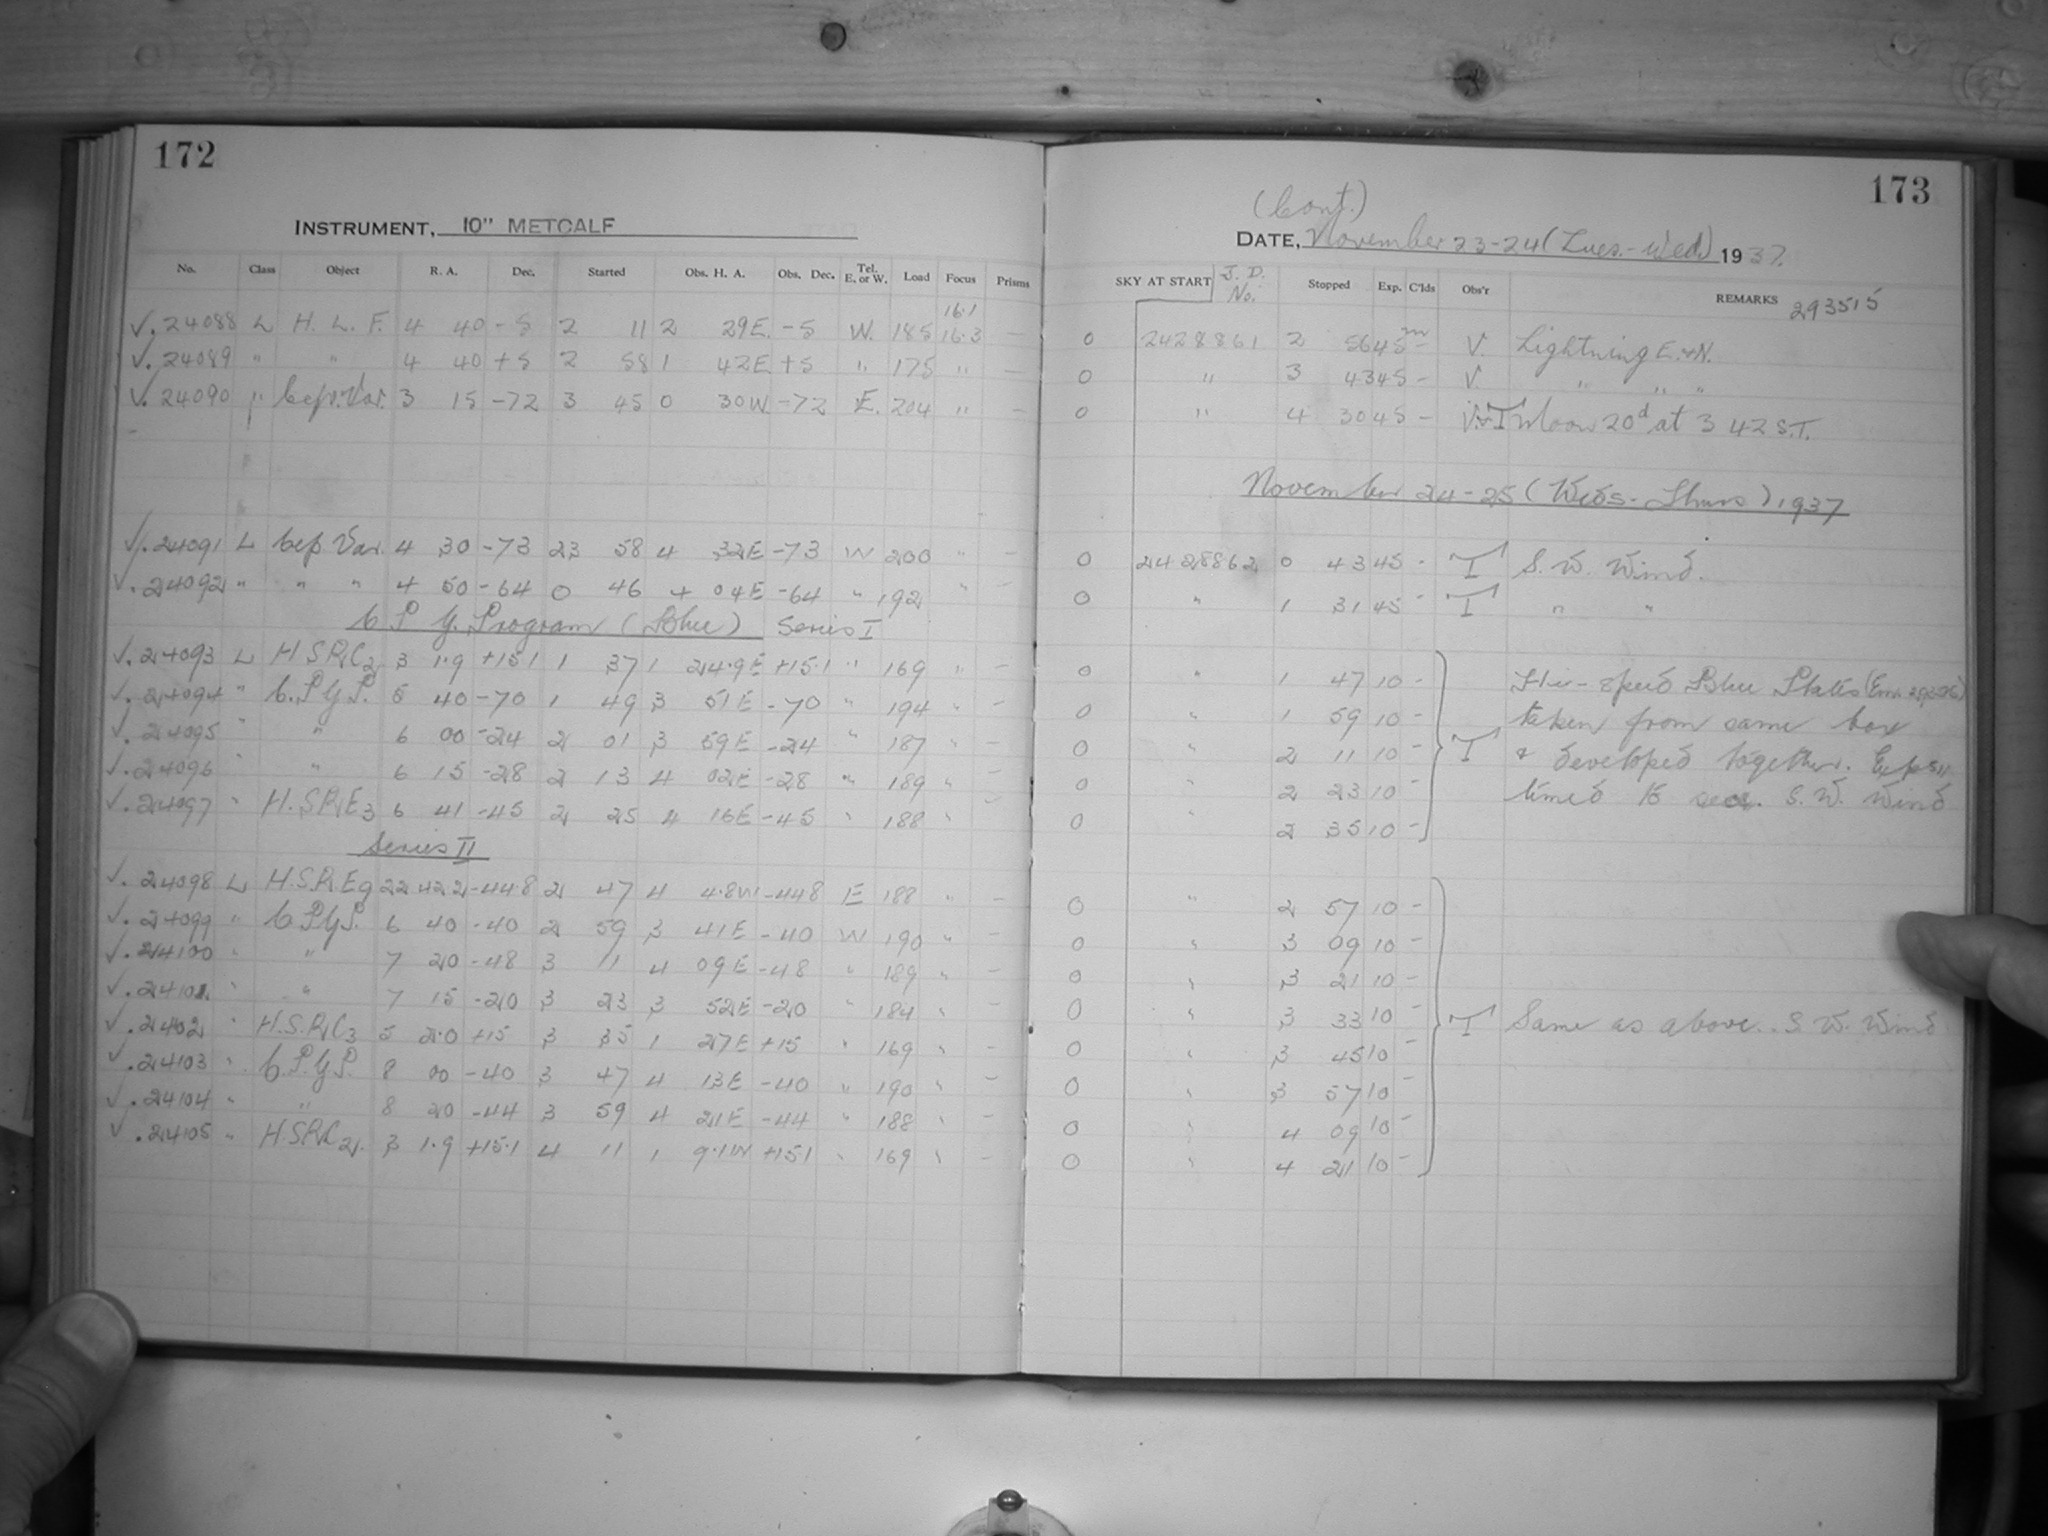 172
INSTRUMENT, 10" METCALF
No. Class Object R. A. Dec. Started Obs. H. A. Obs. Dec. Tel. E. or W. Load Focus Prisms
16.1
√. 24088 L H. L. F. 4 40 -5 2 11 2 29E. -5 W. 185 16.3 —
√. 24089 " " 4 40 +5 2 58 1 42E +5 " 175 " —
√. 24090 " Cep. Var. 3 15 -72 3 45 0 30W -72 E. 204 " —
√. 24091 L Cep Var. 4 30 -73 23 58 4 32E -73 W 200 " —
√. 24092 " " " 4 50 -64 0 46 4 04E -64 " 192 " —
C P Y. Program (Blue) Series I
√. 24093 L H S P. C2 3 1.9 +15.1 1 37 1 24.9E +15.1 " 169 " —
√. 24094 " C.P.Y.P. 5 40 -70 1 49 3 51E -70 " 194 " —
√. 24095 " " 6 00 -24 2 01 3 59E -24 " 187 " —
√. 24096 " " 6 15 -28 2 13 4 02E -28 " 189 " —
√. 24097 " H.S.P. E3 6 41 -45 2 25 4 16E -45 " 188 " —
Series II
√. 24098 L H.S.P. E9 22 42.2 -44.8 2 47 4 4.8W -44.8 E 188 " —
√. 24099 " C.P.Y.P. 6 40 -40 2 59 3 41E -40 W 190 " —
√. 24100 " " 7 20 -48 3 11 4 09E -48 " 189 " —
√. 24101 " " 7 15 -20 3 23 3 52E -20 " 184 " —
√. 2402 " H.S.P. C3 5 2.0 +15 3 35 1 27E +15 " 169 " —
√. 24103 " C.P.Y.P. 8 00 -40 3 47 4 13E -40 " 190 " —
√. 24104 " " 8 20 -44 3 59 4 21E -44 " 188 " —
√. 24105 " H.S.P. C2. 3 1.9 +15.1 4 11 1 9.1W +15.1 " 169 " —
173
(Cont.)
DATE, November 23-24 (Tues.-Wed.) 1937.
SKY AT START J. D. No. Stopped Exp. C'lds Obs'r REMARKS 293515
0 2428861 2 56 45m — V. Lightning E. & N.
0 " 3 43 45 — V. " " "
0 " 4 30 45 — V. & T Moon 20d at 3 42 S.T.
November 24-25 (Weds-Thurs) 1937
0 2428862 0 43 45 - T S. W. Wind.
0 " 1 31 45 - T " "
0 " 1 47 10 -
0 " 1 59 10 -
0 " 2 11 10 - T
0 " 2 23 10 -
0 " 2 35 10 -
Hi-speed Blue Plates
taken from same box
& developed together.
timed 15 sec. S. W. Wind
0 " 2 57 10 -
0 " 3 09 10 -
0 " 3 21 10 -
0 " 3 33 10 - T Same as above. S. W. Wind
0 " 3 45 10 -
0 " 3 57 10 -
0 " 4 09 10 -
0 " 4 21 10 -